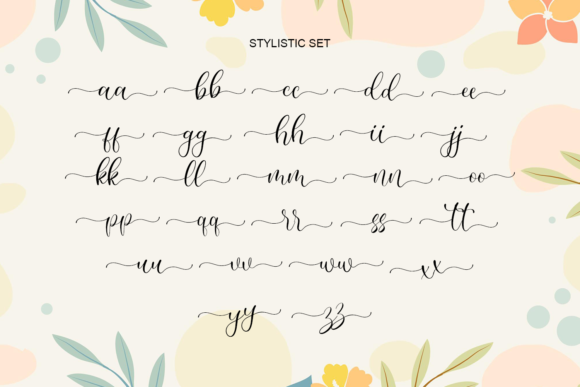 STYLISTIC SET
aa bb cc dd ee
ff gg hh ii jj
kk ll mm nn oo
pp qq rr ss tt
uu vv ww xx
yy zz